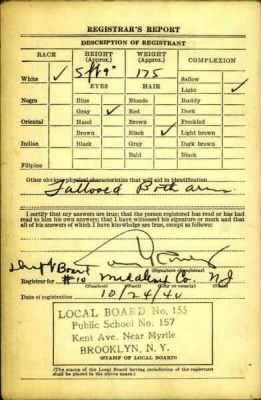 REGISTRAR'S REPORT
DESCRIPTION OF REGISTRANT
RACE HEIGHT (Approx.) WEIGHT (Approx.) COMPLEXION
White ✓ 5 ft 9" 175 Sallow
EYES HAIR Light ✓
Negro Blue Blonde Ruddy
Gray ✓ Red Dark
Oriental Hazel Brown Freckled
Brown Black ✓ Light brown
Indian Black Gray Dark brown
Bald Black
Filipino
Other obvious physical characteristics that will aid in identification
Both arms
I certify that my answers are true; that the person registered has read or has had
read to him his own answers; that I have witnessed his signature or mark and that
all of his answers of which I have knowledge are true, except as follows:
(Signature of registrar)
Registrar for #10 Co. NJ
(Precinct) (Ward) (City or county) (State)
Date of registration 10/24/40
LOCAL BOARD No. 155
Public School No. 157
Kent Ave. Near Myrtle
BROOKLYN, N. Y.
(STAMP OF LOCAL BOARD)
(The stamp of the Local Board having jurisdiction of the registrant
shall be placed in the above space.)